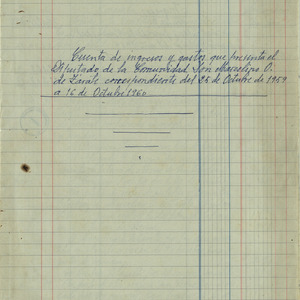 Cuenta de ingresos y gastos que presenta el
Diputado de la Comunidad Don Marcelino O.
de Zarate correspondiente del 25 de Octubre de 1959
a 16 de Octubre 1960